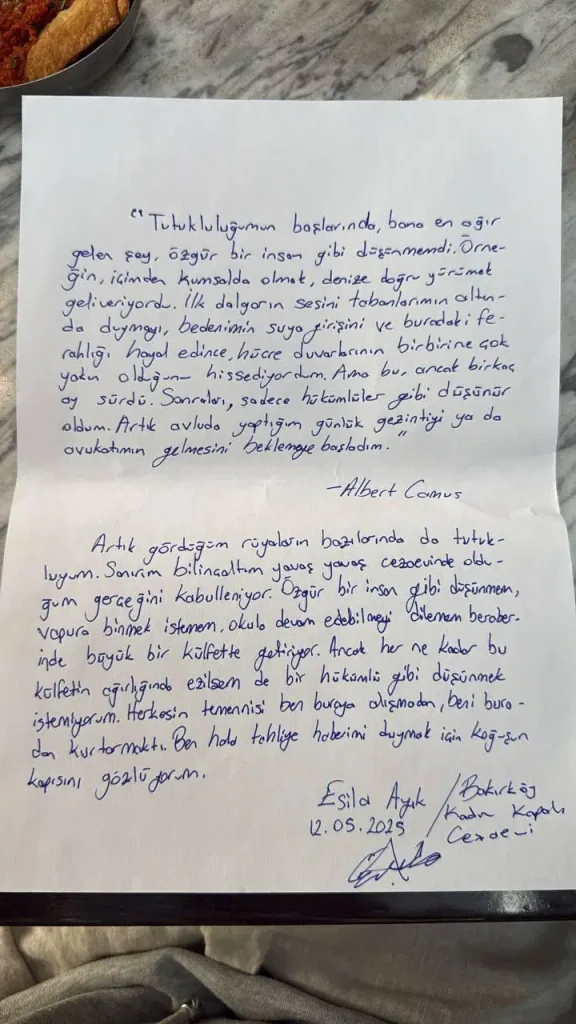 "Tutukluluğumun başlarında, bana en ağır
gelen şey, özgür bir insan gibi düşünmemdi. Örne-
ğin, içimden kumsalda olmak, denize doğru yürümek
geliveriyordu. İlk dalgaların sesini tabanlarımın altın-
da duymayı, bedenimin suya girişini ve buradaki fe-
rahlığı hayal edince, hücre duvarlarının birbirine çok
yakın olduğunu hissediyordum. Ama bu, ancak birkaç
ay sürdü. Sonraları, sadece hükümlüler gibi düşünür
oldum. Artık avluda yaptığım günlük gezintiyi ya da
avukatımın gelmesini beklemeye başladım."
-Albert Camus
Artık gördüğüm rüyaların bazılarında da tutuk-
luyum. Sanırım bilinçaltım yavaş yavaş cezaevinde oldu-
ğum gerçeğini kabulleniyor. Özgür bir insan gibi düşünmem,
vapura binmek istemem, okula devam edebilmeyi dilemem beraber-
inde büyük bir külfette getiriyor. Ancak her ne kadar bu
külfetin ağırlığında ezilsem de bir hükümlü gibi düşünmek
istemiyorum. Herkesin temennisi ben buraya alışmadan, beni bura-
dan kurtarmaktı. Ben hala tahliye haberimi duymak için koğuşun
kapısını gözlüyorum.
Esila Ayık / Bakırköy
12.05.2025 Kadın Kapalı
Cezaevi